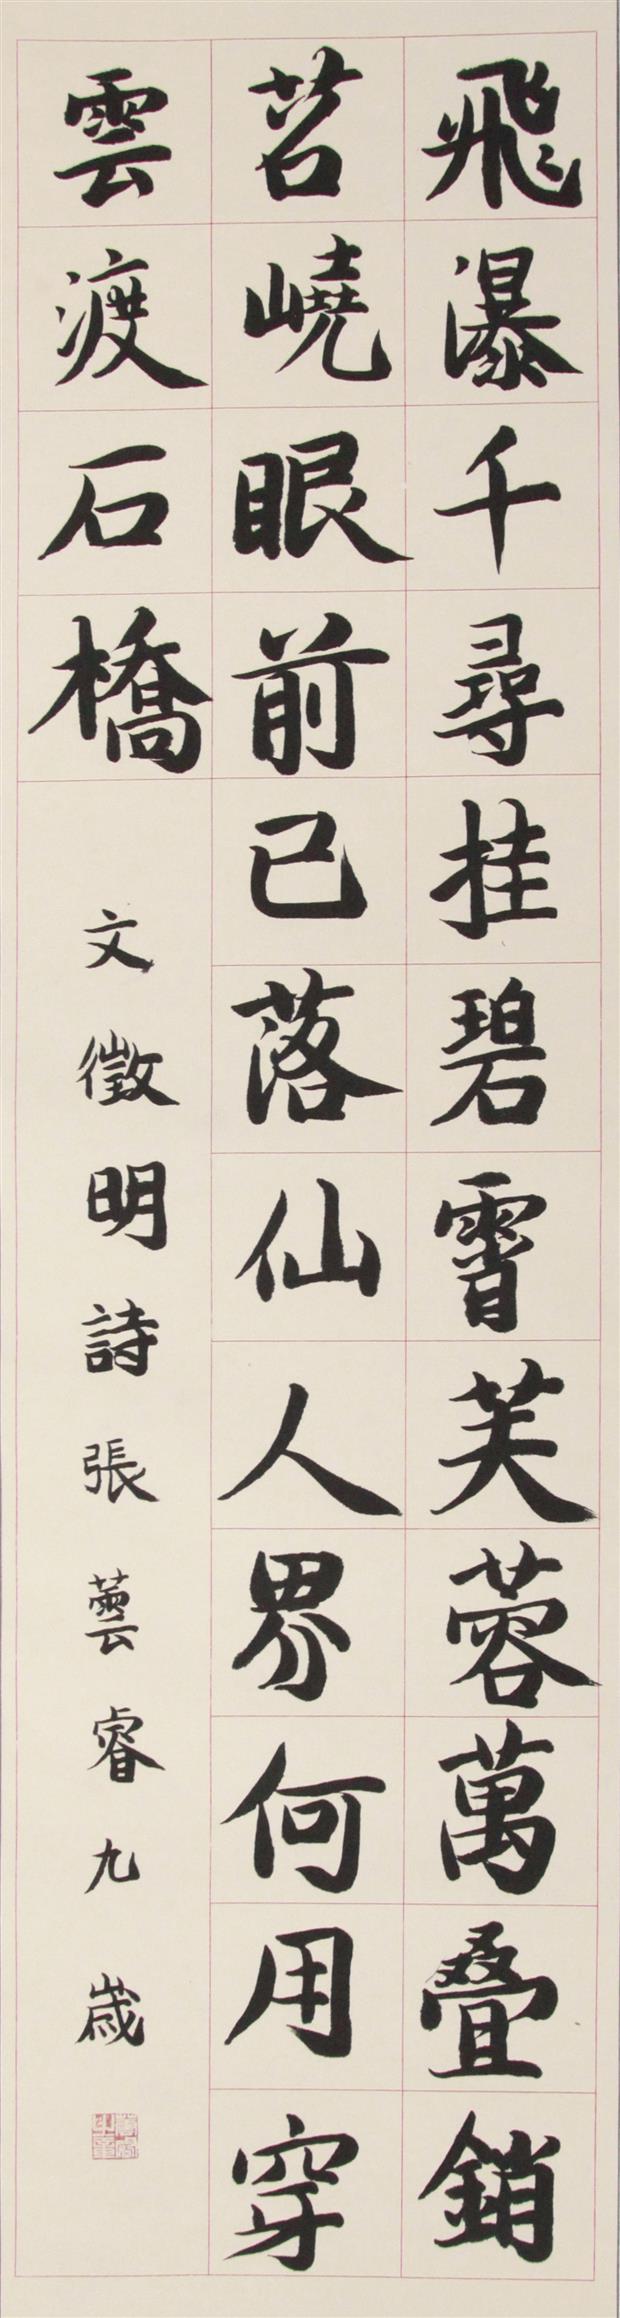 飛瀑千尋挂碧霄芙蓉萬疊銷
苕嶢眼前已落仙人界何用穿
雲渡石橋
文徵明詩張蕓睿九歲